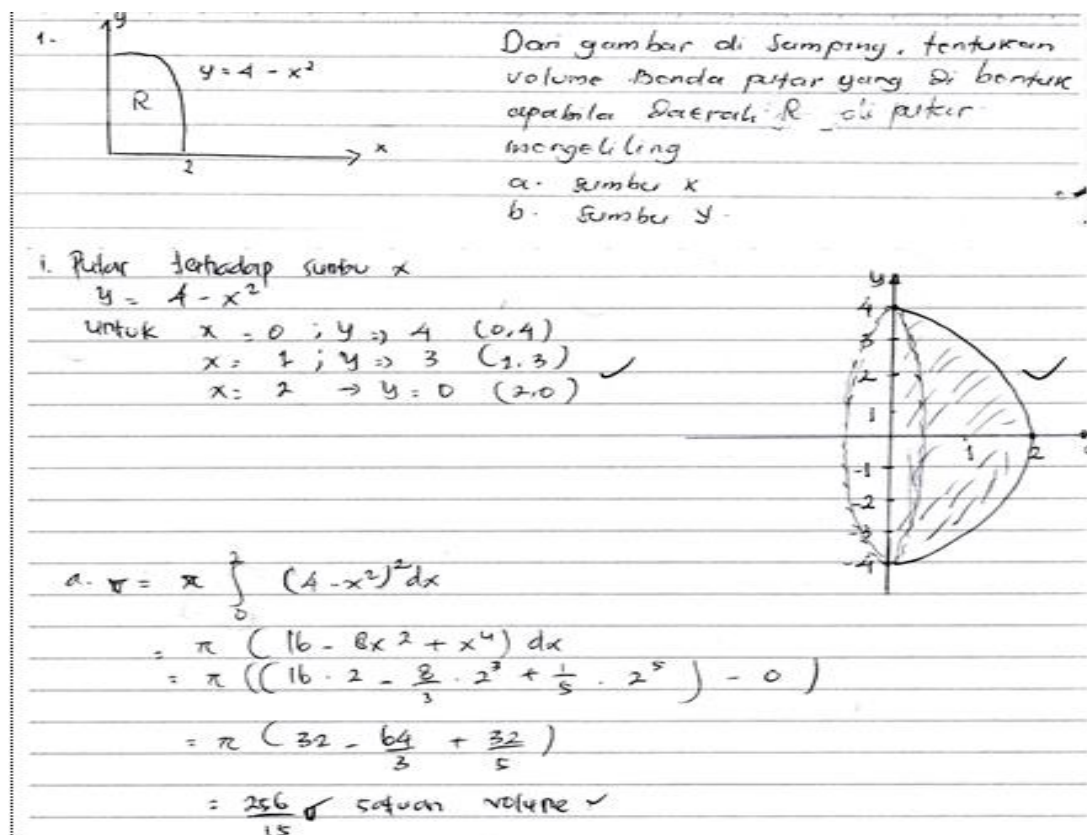 1.
y
y = 4 - x²
R
x
2
Dari gambar di Samping, tentukan
volume Benda putar yang di bentuk
apabila Daerah R di putar
mengeliling
a. sumbu x
b. Sumbu y.
i. Putar terhadap sumbu x
y = 4 - x²
untuk x = 0 ; y => 4 (0,4)
x = 1 ; y => 3 (1,3) ✓
x = 2 → y = 0 (2,0)
y
4
3
2
1
1 2
-1
-2
-3
-4
a. v = π ∫₀² (4 - x²)² dx
= π (16 - 8x² + x⁴) dx
= π ((16 · 2 - 8/3 · 2³ + 1/5 · 2⁵) - 0)
= π (32 - 64/3 + 32/5)
= 256/15 satuan volume ✓